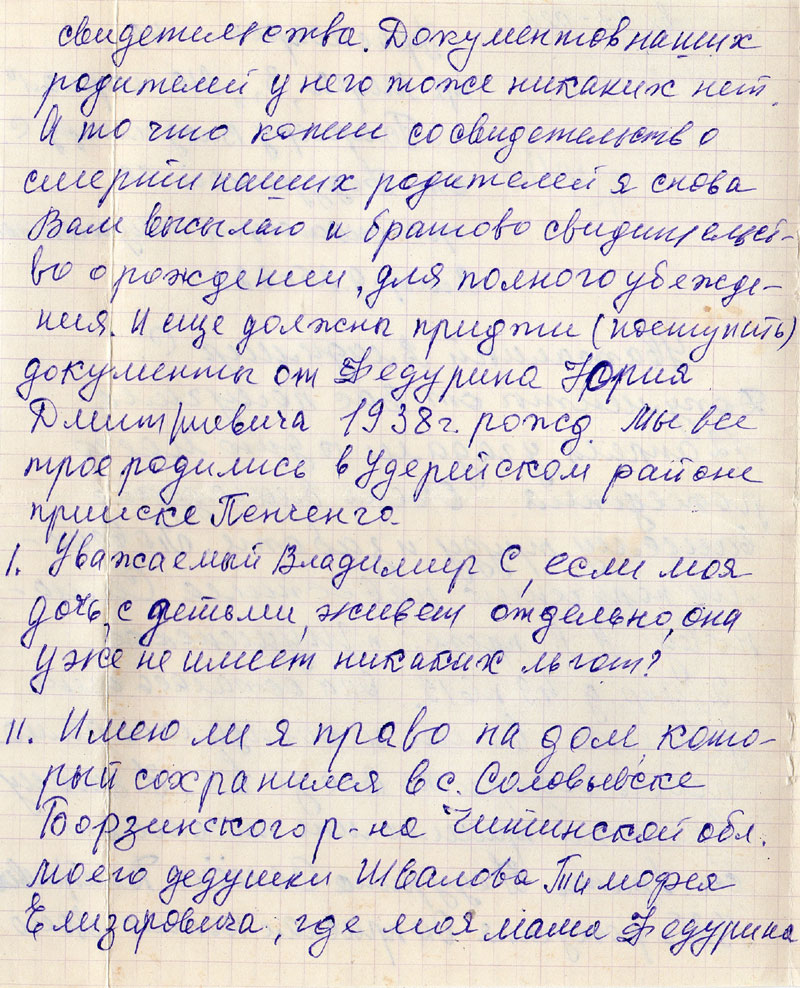 свидетельства. Документов наших
родителей у него тоже никаких нет.
А то что копии со свидетельств о
смерти наших родителей я снова
Вам высылаю и братово свидительст-
во о рождении, для полного убежде-
ния. И еще должны приджи (поступить)
документы от Федурина Юрия
Дмитриевича 1938 г. рожд. Мы все
трое родились в Удерейском районе
прииске Пенченга
I. Уважаемый Владимир С, если моя
дочь, с детьми, живет отдельно, она
уже не имеет никаких льгот?
II. Имею ли я право на дом, кото-
рый сохранился в с. Соловьевске
Борзинского р-на Читинской обл.
моего дедушки Швалова Тимофея
Елизаровича, где моя мама Федурина